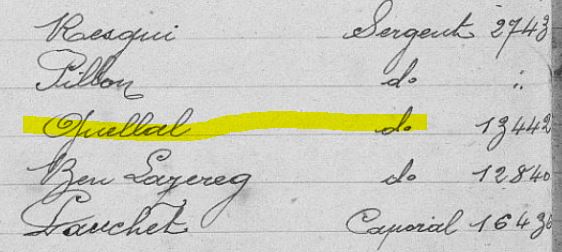 Resqui Sergent 2743
Pillon do :
Quellal do 13442
Ben Lazereg do 12840
Gauchet Caporal 16436